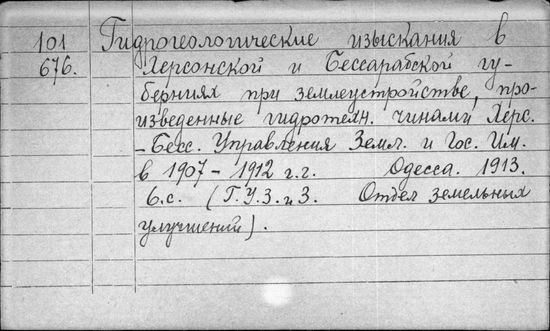 101 Гидрогеологические изыскания в
676. Херсонской и Бессарабской гу-
берниях при землеустройстве, про-
изведенные гидротехн. чинами Херс.
-Бесс. Управления Земл. и Гос. Им.
в 1907-1912 г.г. Одесса. 1913.
6.с. (Г.У.З. и З. Отдел земельных
улучшений).